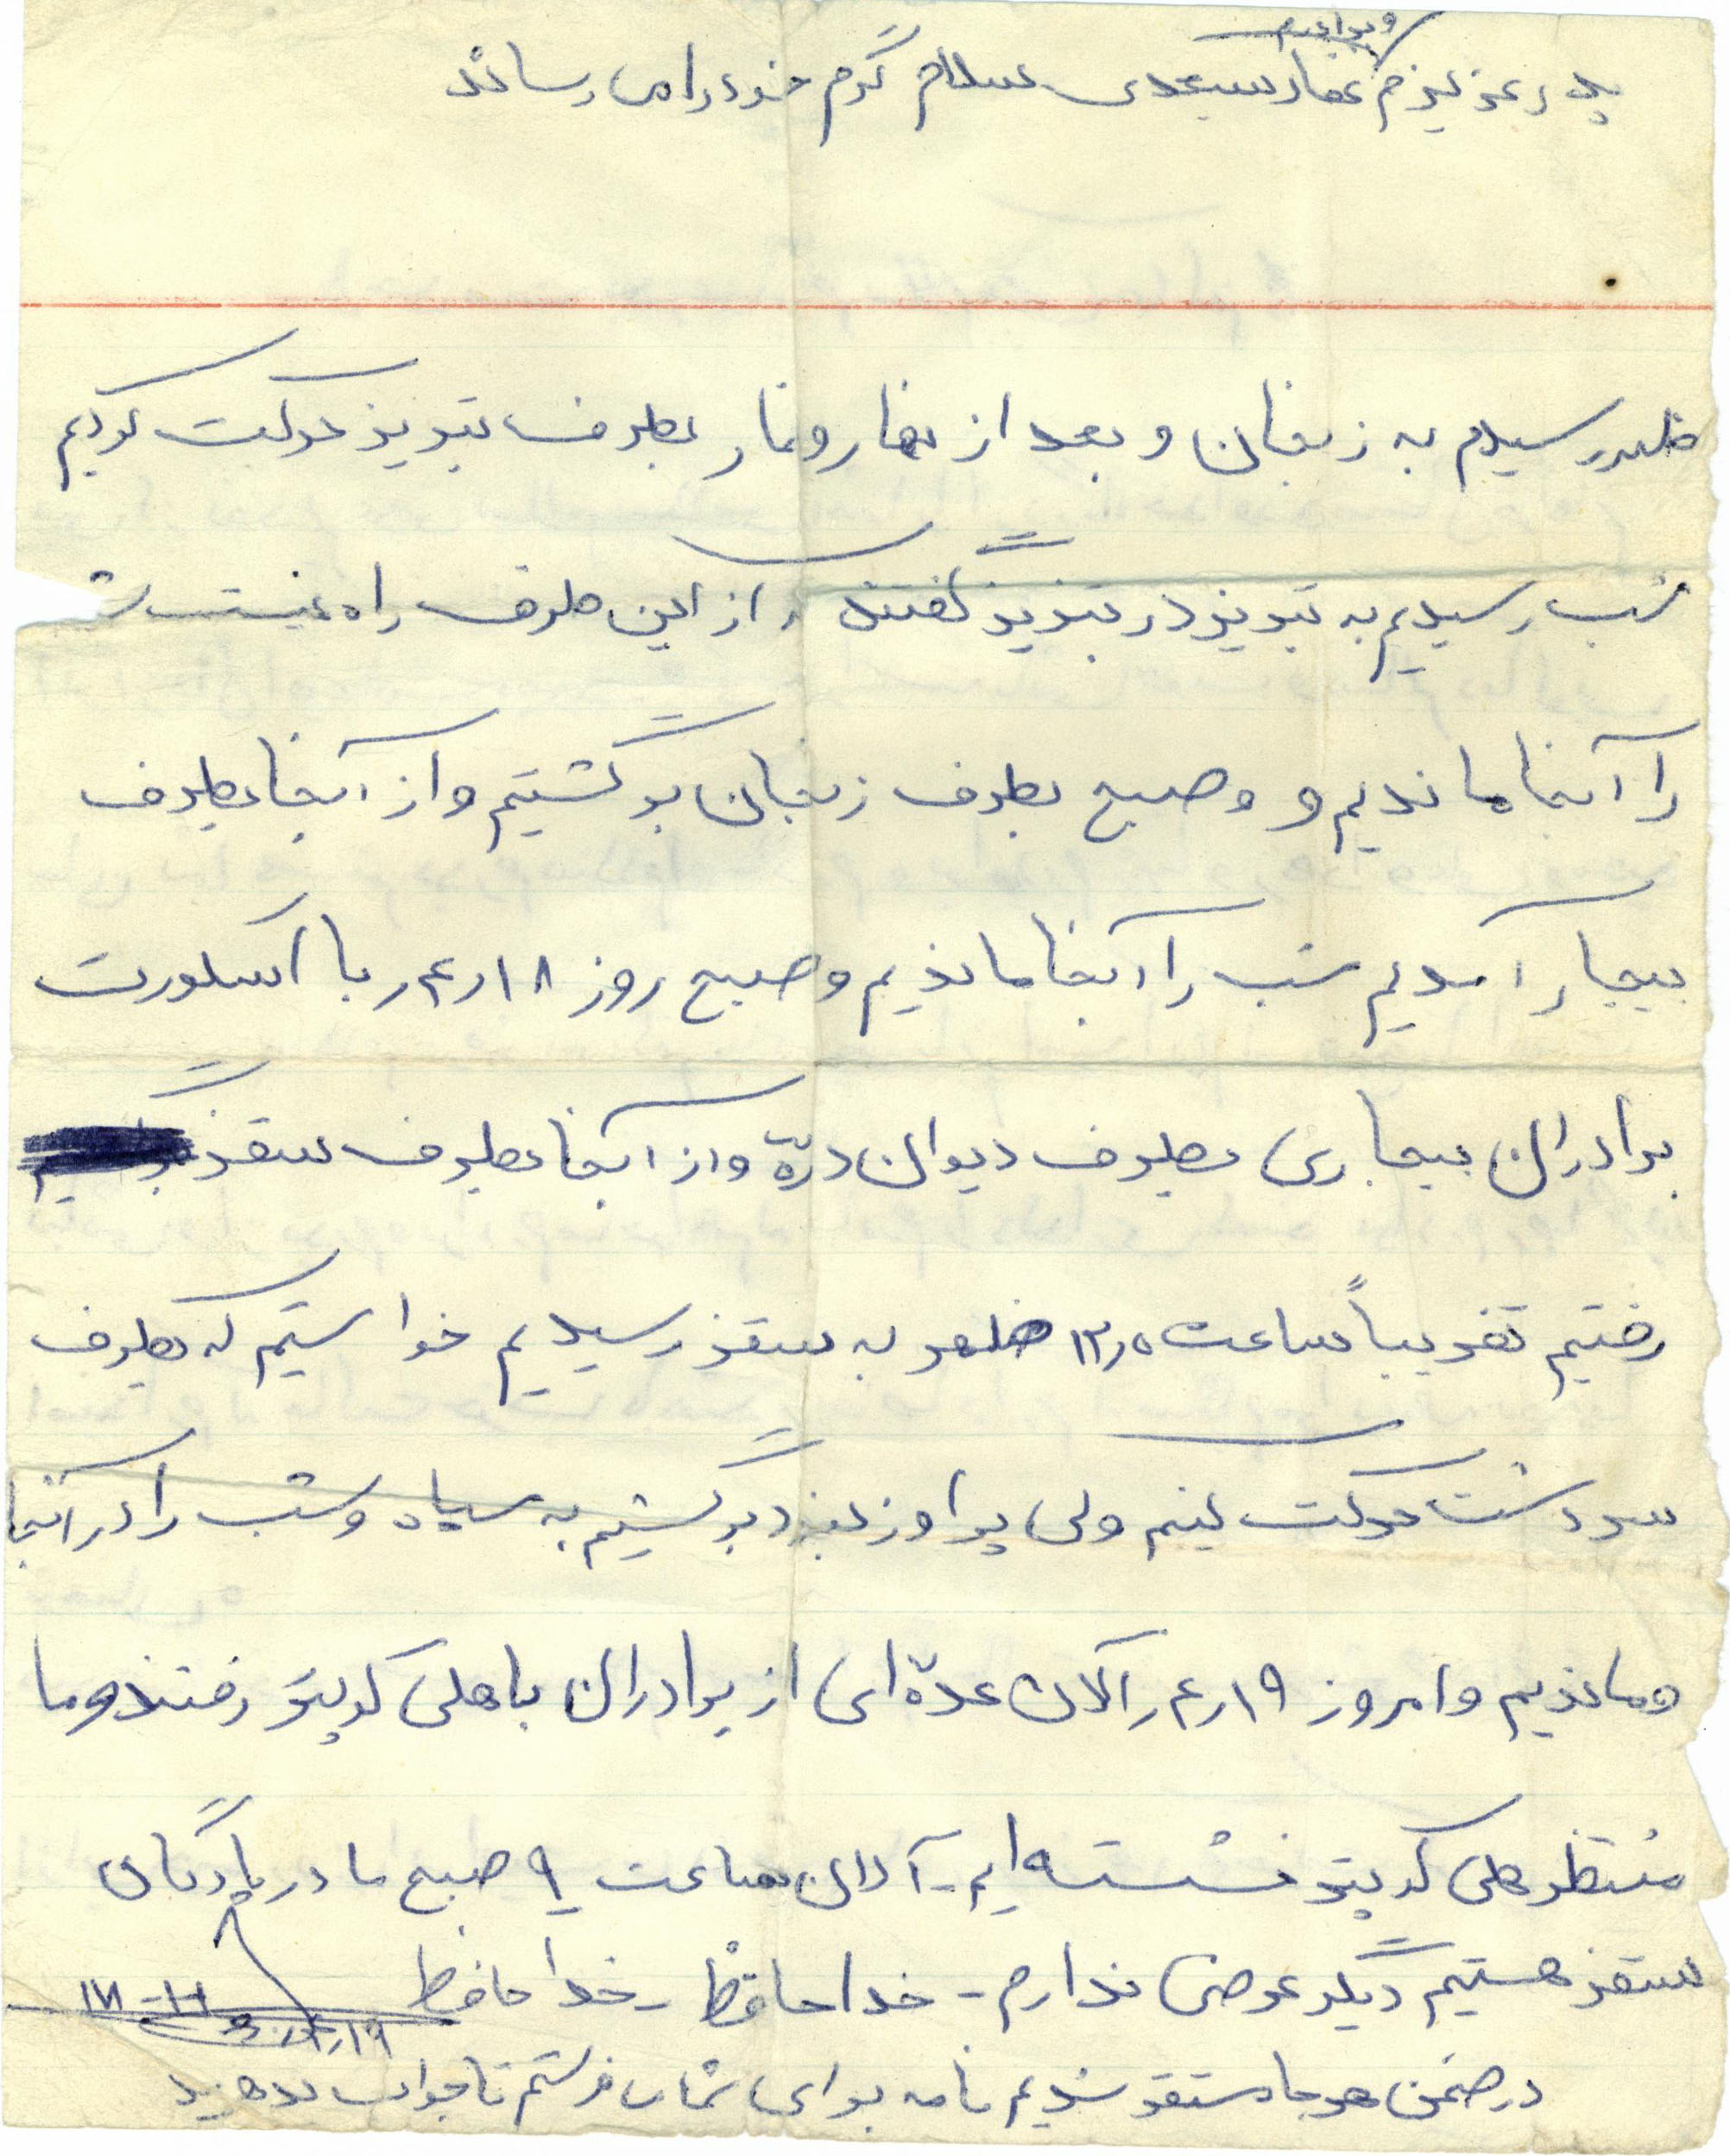 و برادرم
پدر عزیزم غفار سعدی سلام گرم خود را می رساند
ظهر رسیدم به زنجان و بعد از نهار و نماز بطرف تبریز حرکت کردیم
شب رسیدیم به تبریز در تبریز گفتند از این طرف راه نیست شب
را آنجا ماندیم و و صبح بطرف زنجان برگشتیم و از آنجا بطرف
بیجار آمدیم شب را آنجا ماندیم و صبح روز ۱۸ر۴ر با اسکورت
برادران بیجاری بطرف دیوان درّه و از آنجا بطرف سقز
رفتیم تقریباً ساعت ۱۲ر۵ ظهر به سقز رسیدیم خواستیم که بطرف
سردشت حرکت کنیم ولی پرواز نبود برگشتیم به سپاه و شب را در آنجا
وماندیم و امروز ۱۹ر۴ر الان عدّه ای از برادران با هلی کوپتر رفتند و ما
منتظر هلی کوپتر نشسته ایم - آلان ساعت ۹ صبح ما در پادگان
سقز هستیم دیگر عرضی ندارم - خدا حافظ - خدا حافظ
در ضمن هر جا مستقر شدیم نامه برای شما می فرستم تا جواب بدهید